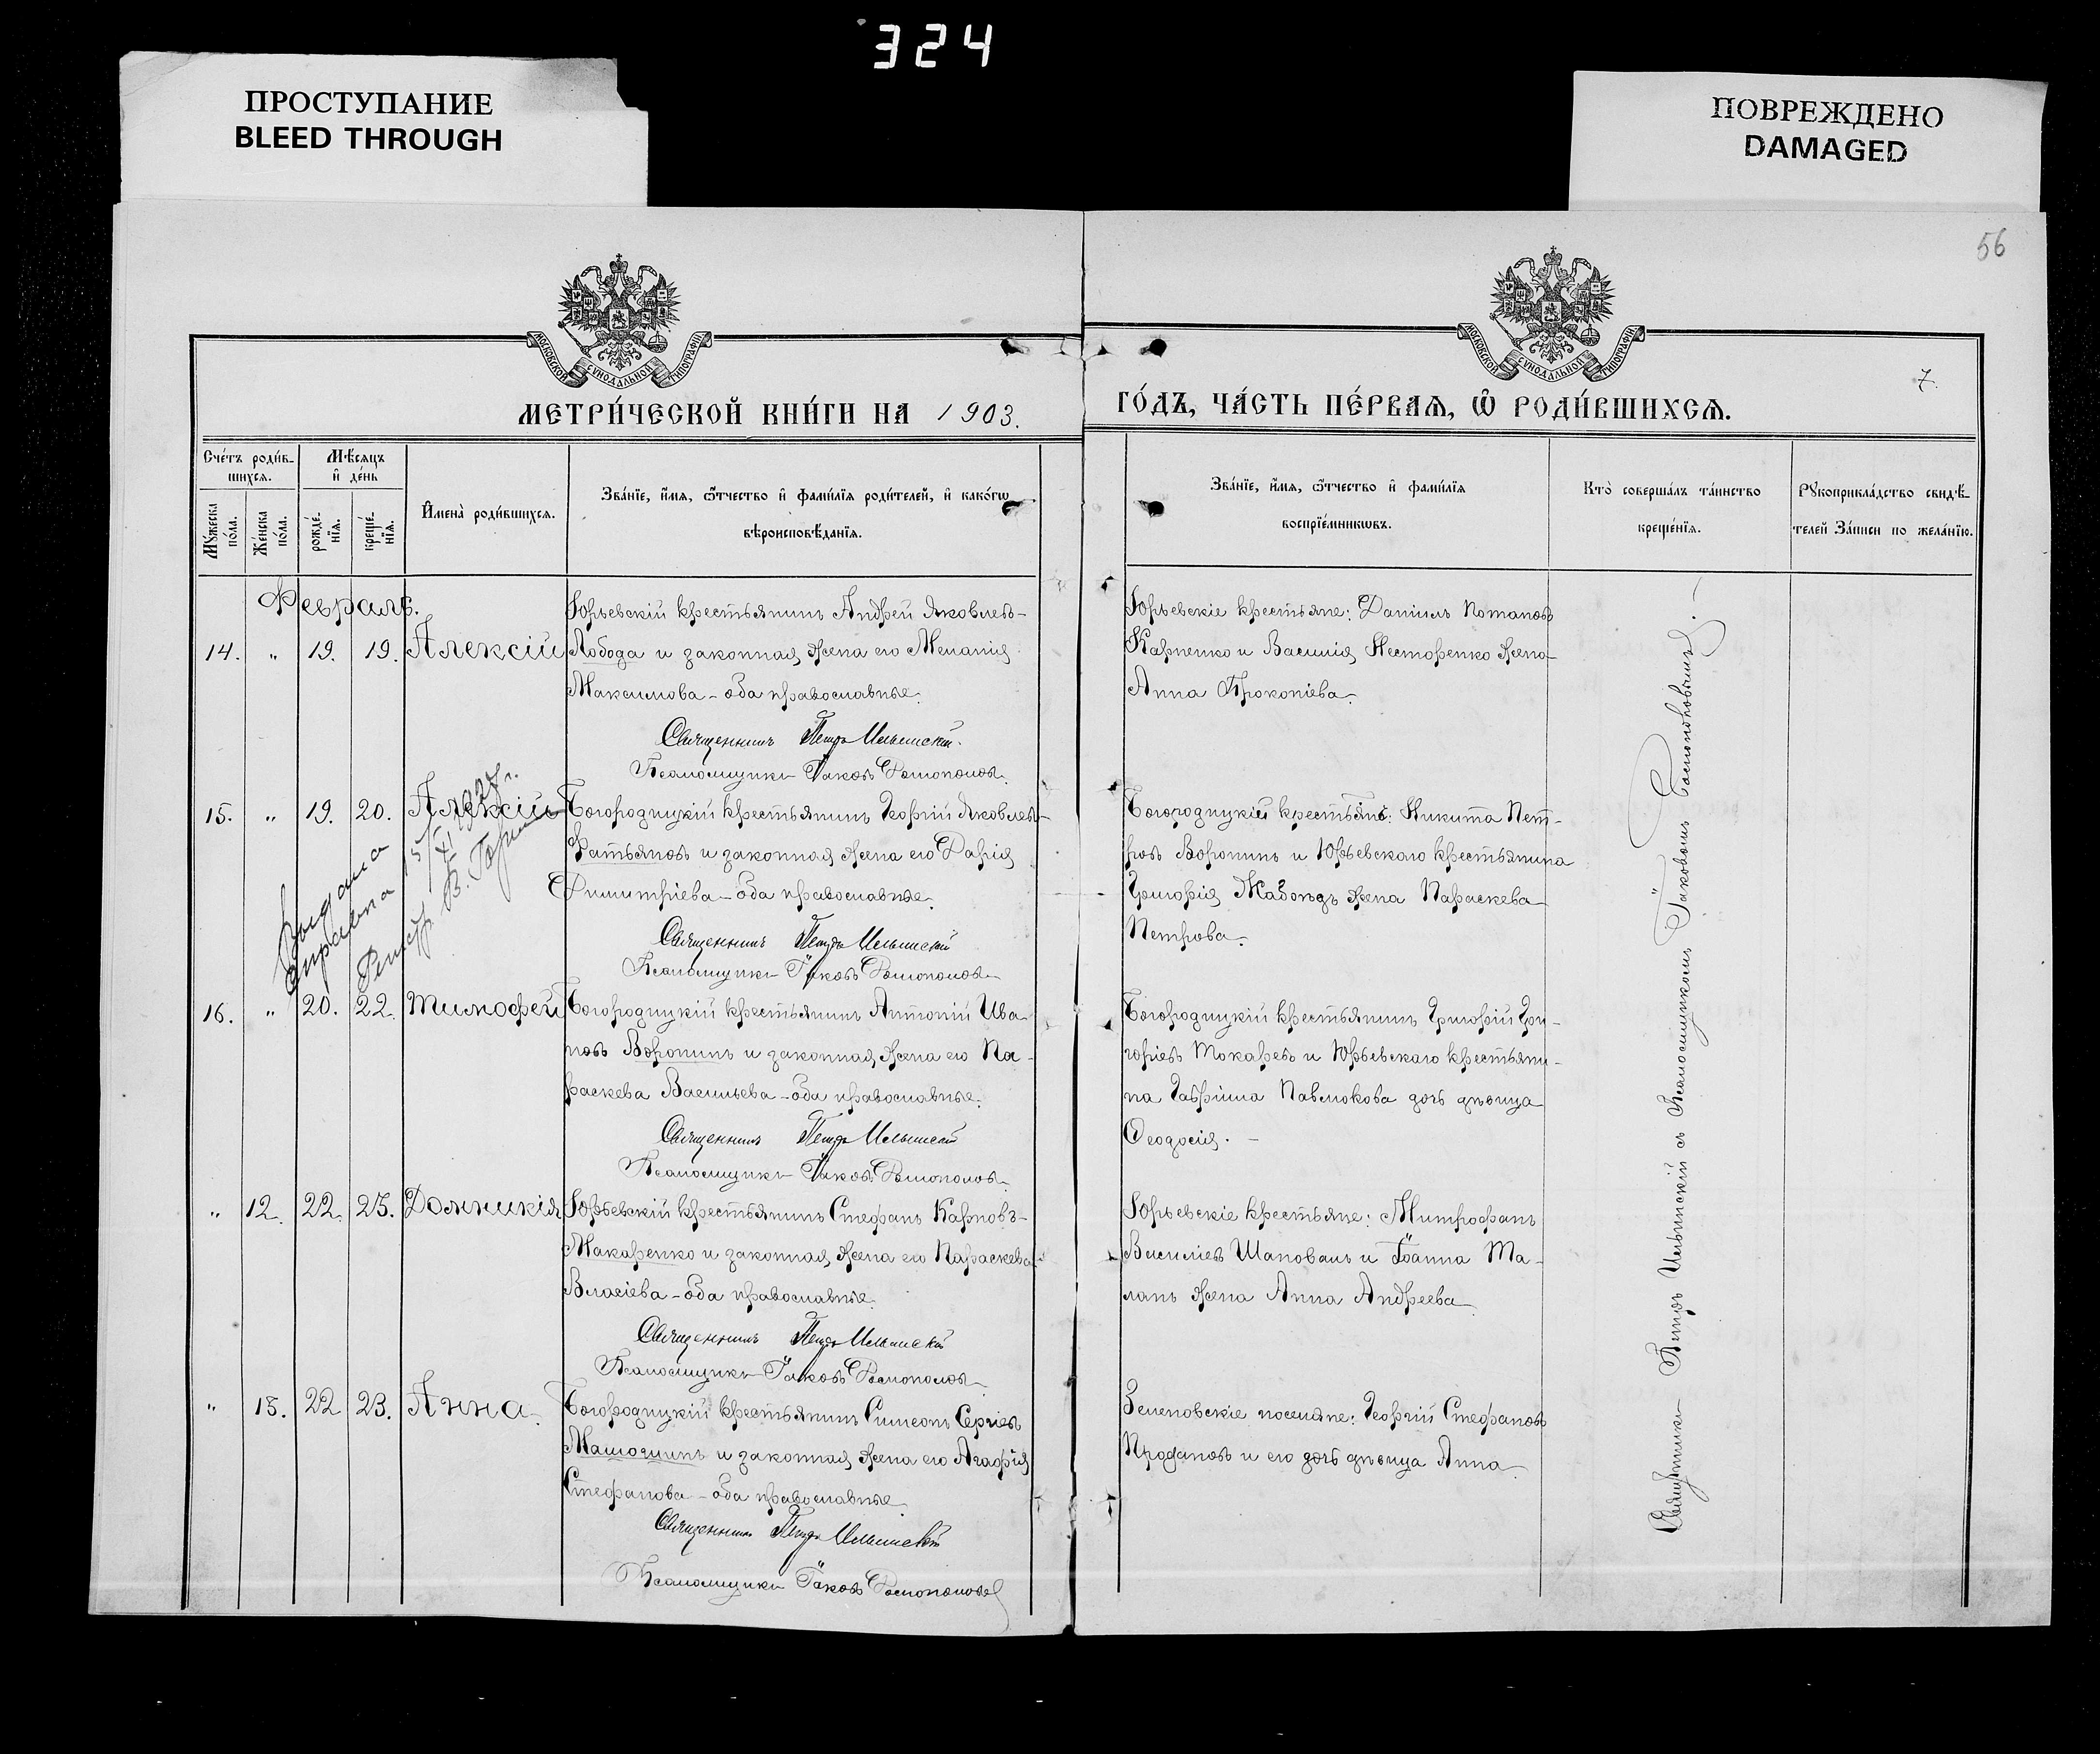 324
ПРОСТУПАНИЕ
BLEED THROUGH
ПОВРЕЖДЕНО
DAMAGED
56
7.
МОСКОВСКОЙ СѴНОДАЛЬНОЙ ТИПОГРАФІИ
МОСКОВСКОЙ СѴНОДАЛЬНОЙ ТИПОГРАФІИ
МЕТРИ́ЧЕСКОЙ КНИ́ГИ НА 1903.
ГО́ДЪ, ЧА́СТЬ ПЕ́РВАѦ, Ѡ҆ РОДИ́ВШИХСѦ.
Сче́тъ роди́в-
шихсѧ.
Мѣ́сѧцъ
и҆ де́нь
Мꙋ́жеска по́ла.
Же́нска по́ла.
рожде́-
нїѧ.
креще́-
нїѧ.
И҆мена̀ роди́вшихсѧ.
Зва́нїе, и҆́мѧ, ѻ҆́тчество и҆ фами́лїѧ роди́телей, и҆ како́гѡ
вѣроисповѣ́данїѧ.
Зва́нїе, и҆́мѧ, ѻ҆́тчество и҆ фами́лїѧ
воспрїе́мникѡвъ.
Кто̀ соверша́лъ та́инство
креще́нїѧ.
Рꙋкоприкла́дство свидѣ́-
телей за́писи по жела́нїю.
Февраль.
14. „ 19. 19. Алексій
Юрьевскій крестьянинъ Андрей Яковлевъ-
Лобода и законная жена его Меланія
Максимова - оба православные.
Священникъ Петръ Ильинскій.
Псаломщикъ Іаковъ Распоповъ.
Юрьевскіе крестьяне: Даніилъ Потаповъ
Карпенко и Василія Несторенко жена-
Анна Прокопіева.
15. „ 19. 20. Алексій
Богородицкій крестьянинъ Георгій Яковлевъ-
Фатьяновъ и законная жена его Дарія
Димитріева - оба православные.
Священникъ Петръ Ильинскій
Псаломщикъ Іаковъ Распоповъ
Богородицкій крестьянинъ: Никита Пет-
ровъ Воронинъ и Юрьевского крестьянина
Григорія жена Параскева
Петрова.
Выдана
справка 15/XI 1927 г.
В.
16. „ 20. 22. Тимофей
Богородицкій крестьянинъ Антоній Ива-
новъ Воронинъ и законная жена его Па-
раскева Васильева - оба православные.
Священникъ Петръ Ильинскій
Псаломщикъ Іаковъ Распоповъ.
Богородицкій крестьянинъ Григорій Гри-
горіевъ Токаревъ и Юрьевскаго крестьяни-
на Гавріила Павлюкова дочь дѣвица
Ѳеодосія. -
„ 12. 22. 25. Домникія
Юрьевскій крестьянинъ Стефанъ Карповъ-
Макаренко и законная жена его Параскева
Власіева - оба православные.
Священникъ Петръ Ильинскій
Псаломщикъ Іаковъ Распоповъ
Юрьевскіе крестьяне: Митрофанъ
Василіевъ Шаповалъ и Іоанна Ма-
ланъ жена Анна Андреева
„ 13. 22 23. Анна.
Богородицкій крестьянинъ Симеонъ Сергіевъ
Машошинъ и законная жена его Агафія
Стефанова - оба православные
Священникъ Петръ Ильинскій
Псаломщикъ Іаковъ Распоповъ
Зеленовскіе поселяне: Георгій Стефановъ
Продановъ и его дочь дѣвица Анна
Священникъ Петръ Ильинскій съ Псаломщикомъ Іаковомъ Распоповымъ.